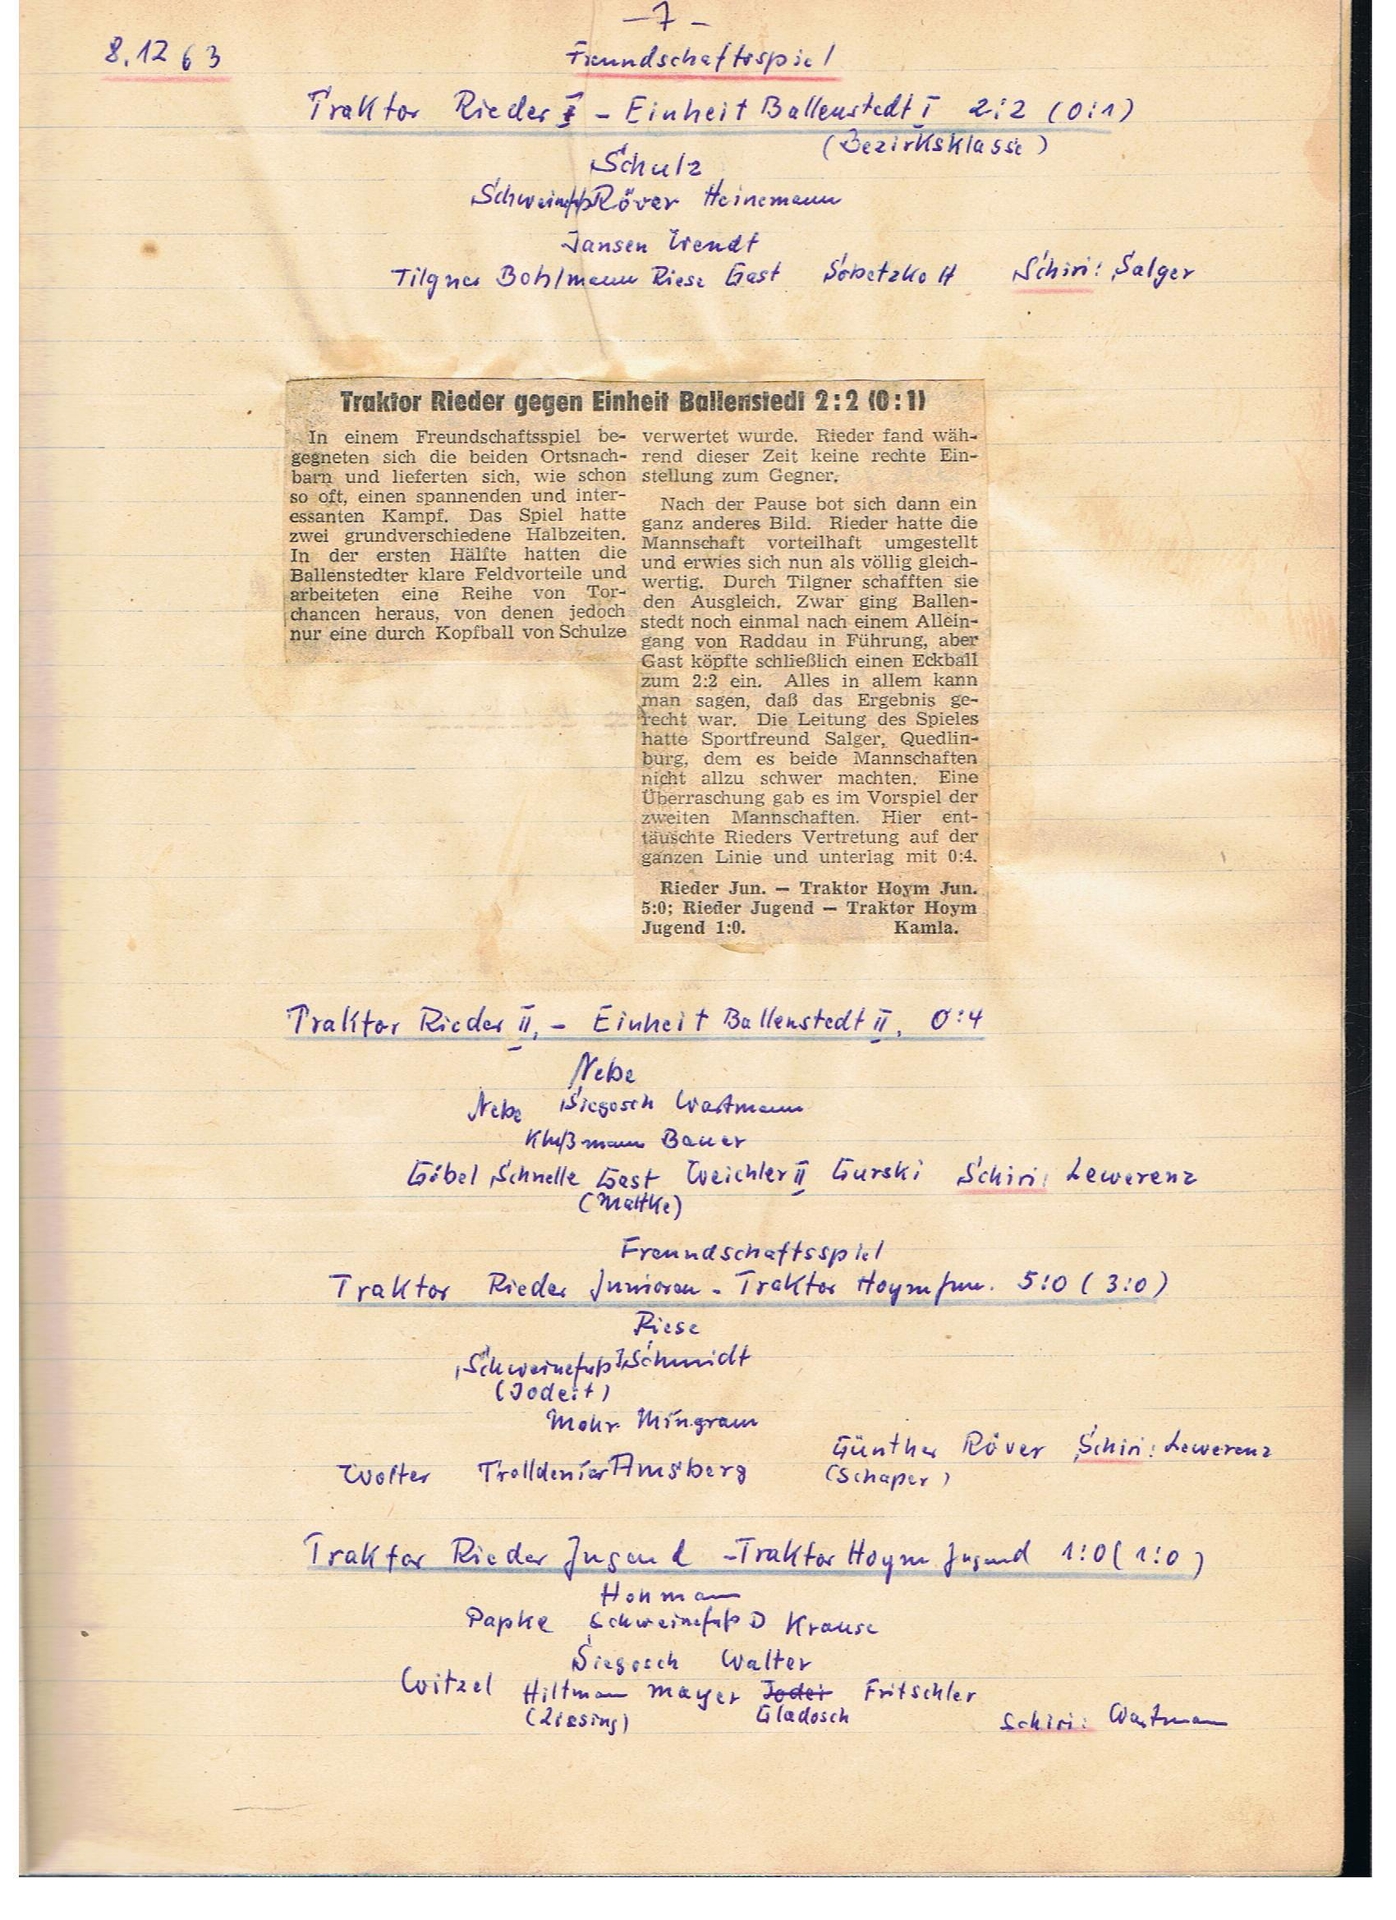 - 7 -
8.12 63 Freundschaftsspiel
Traktor Rieder I - Einheit Ballenstedt I 2:2 (0:1)
(Bezirksklasse)
Schulz
Schweinefuß Röver Heinemann
Jansen Wendt
Tilgner Bohlmann Riese Gast Sobetzko H Schiri: Salger
Traktor Rieder gegen Einheit Ballenstedt 2:2 (0:1)
In einem Freundschaftsspiel be-
gegneten sich die beiden Ortsnach-
barn und lieferten sich, wie schon
so oft, einen spannenden und inter-
essanten Kampf. Das Spiel hatte
zwei grundverschiedene Halbzeiten.
In der ersten Hälfte hatten die
Ballenstedter klare Feldvorteile und
arbeiteten eine Reihe von Tor-
chancen heraus, von denen jedoch
nur eine durch Kopfball von Schulze
verwertet wurde. Rieder fand wäh-
rend dieser Zeit keine rechte Ein-
stellung zum Gegner.
Nach der Pause bot sich dann ein
ganz anderes Bild. Rieder hatte die
Mannschaft vorteilhaft umgestellt
und erwies sich nun als völlig gleich-
wertig. Durch Tilgner schafften sie
den Ausgleich. Zwar ging Ballen-
stedt noch einmal nach einem Allein-
gang von Raddau in Führung, aber
Gast köpfte schließlich einen Eckball
zum 2:2 ein. Alles in allem kann
man sagen, daß das Ergebnis ge-
recht war. Die Leitung des Spieles
hatte Sportfreund Salger, Quedlin-
burg, dem es beide Mannschaften
nicht allzu schwer machten. Eine
Überraschung gab es im Vorspiel der
zweiten Mannschaften. Hier ent-
täuschte Rieders Vertretung auf der
ganzen Linie und unterlag mit 0:4.
Rieder Jun. — Traktor Hoym Jun.
5:0; Rieder Jugend — Traktor Hoym
Jugend 1:0. Kamla.
Traktor Rieder II. - Einheit Ballenstedt II. 0:4
Nebe
Nebe Siegosch Wartmann
Klußmann Bauer
Göbel Schnelle Gast Weichler II Gurski Schiri: Lewerenz
(Mattke)
Freundschaftsspiel
Traktor Rieder Junioren - Traktor Hoym Jun. 5:0 (3:0)
Riese
Schweinefuß J, Schmidt
(Jodeit)
Mohr Mingram
Günther Röver Schiri: Lewerenz
Wolter Trolldenier Amsberg (Schaper)
Traktor Rieder Jugend - Traktor Hoym Jugend 1:0 (1:0)
Homann
Papke Schweinefuß D Krause
Siegosch Walter
Witzel Hiltmann Mayer Jodei Fritschler
(Ziesing) Gladosch Schiri: Wartmann